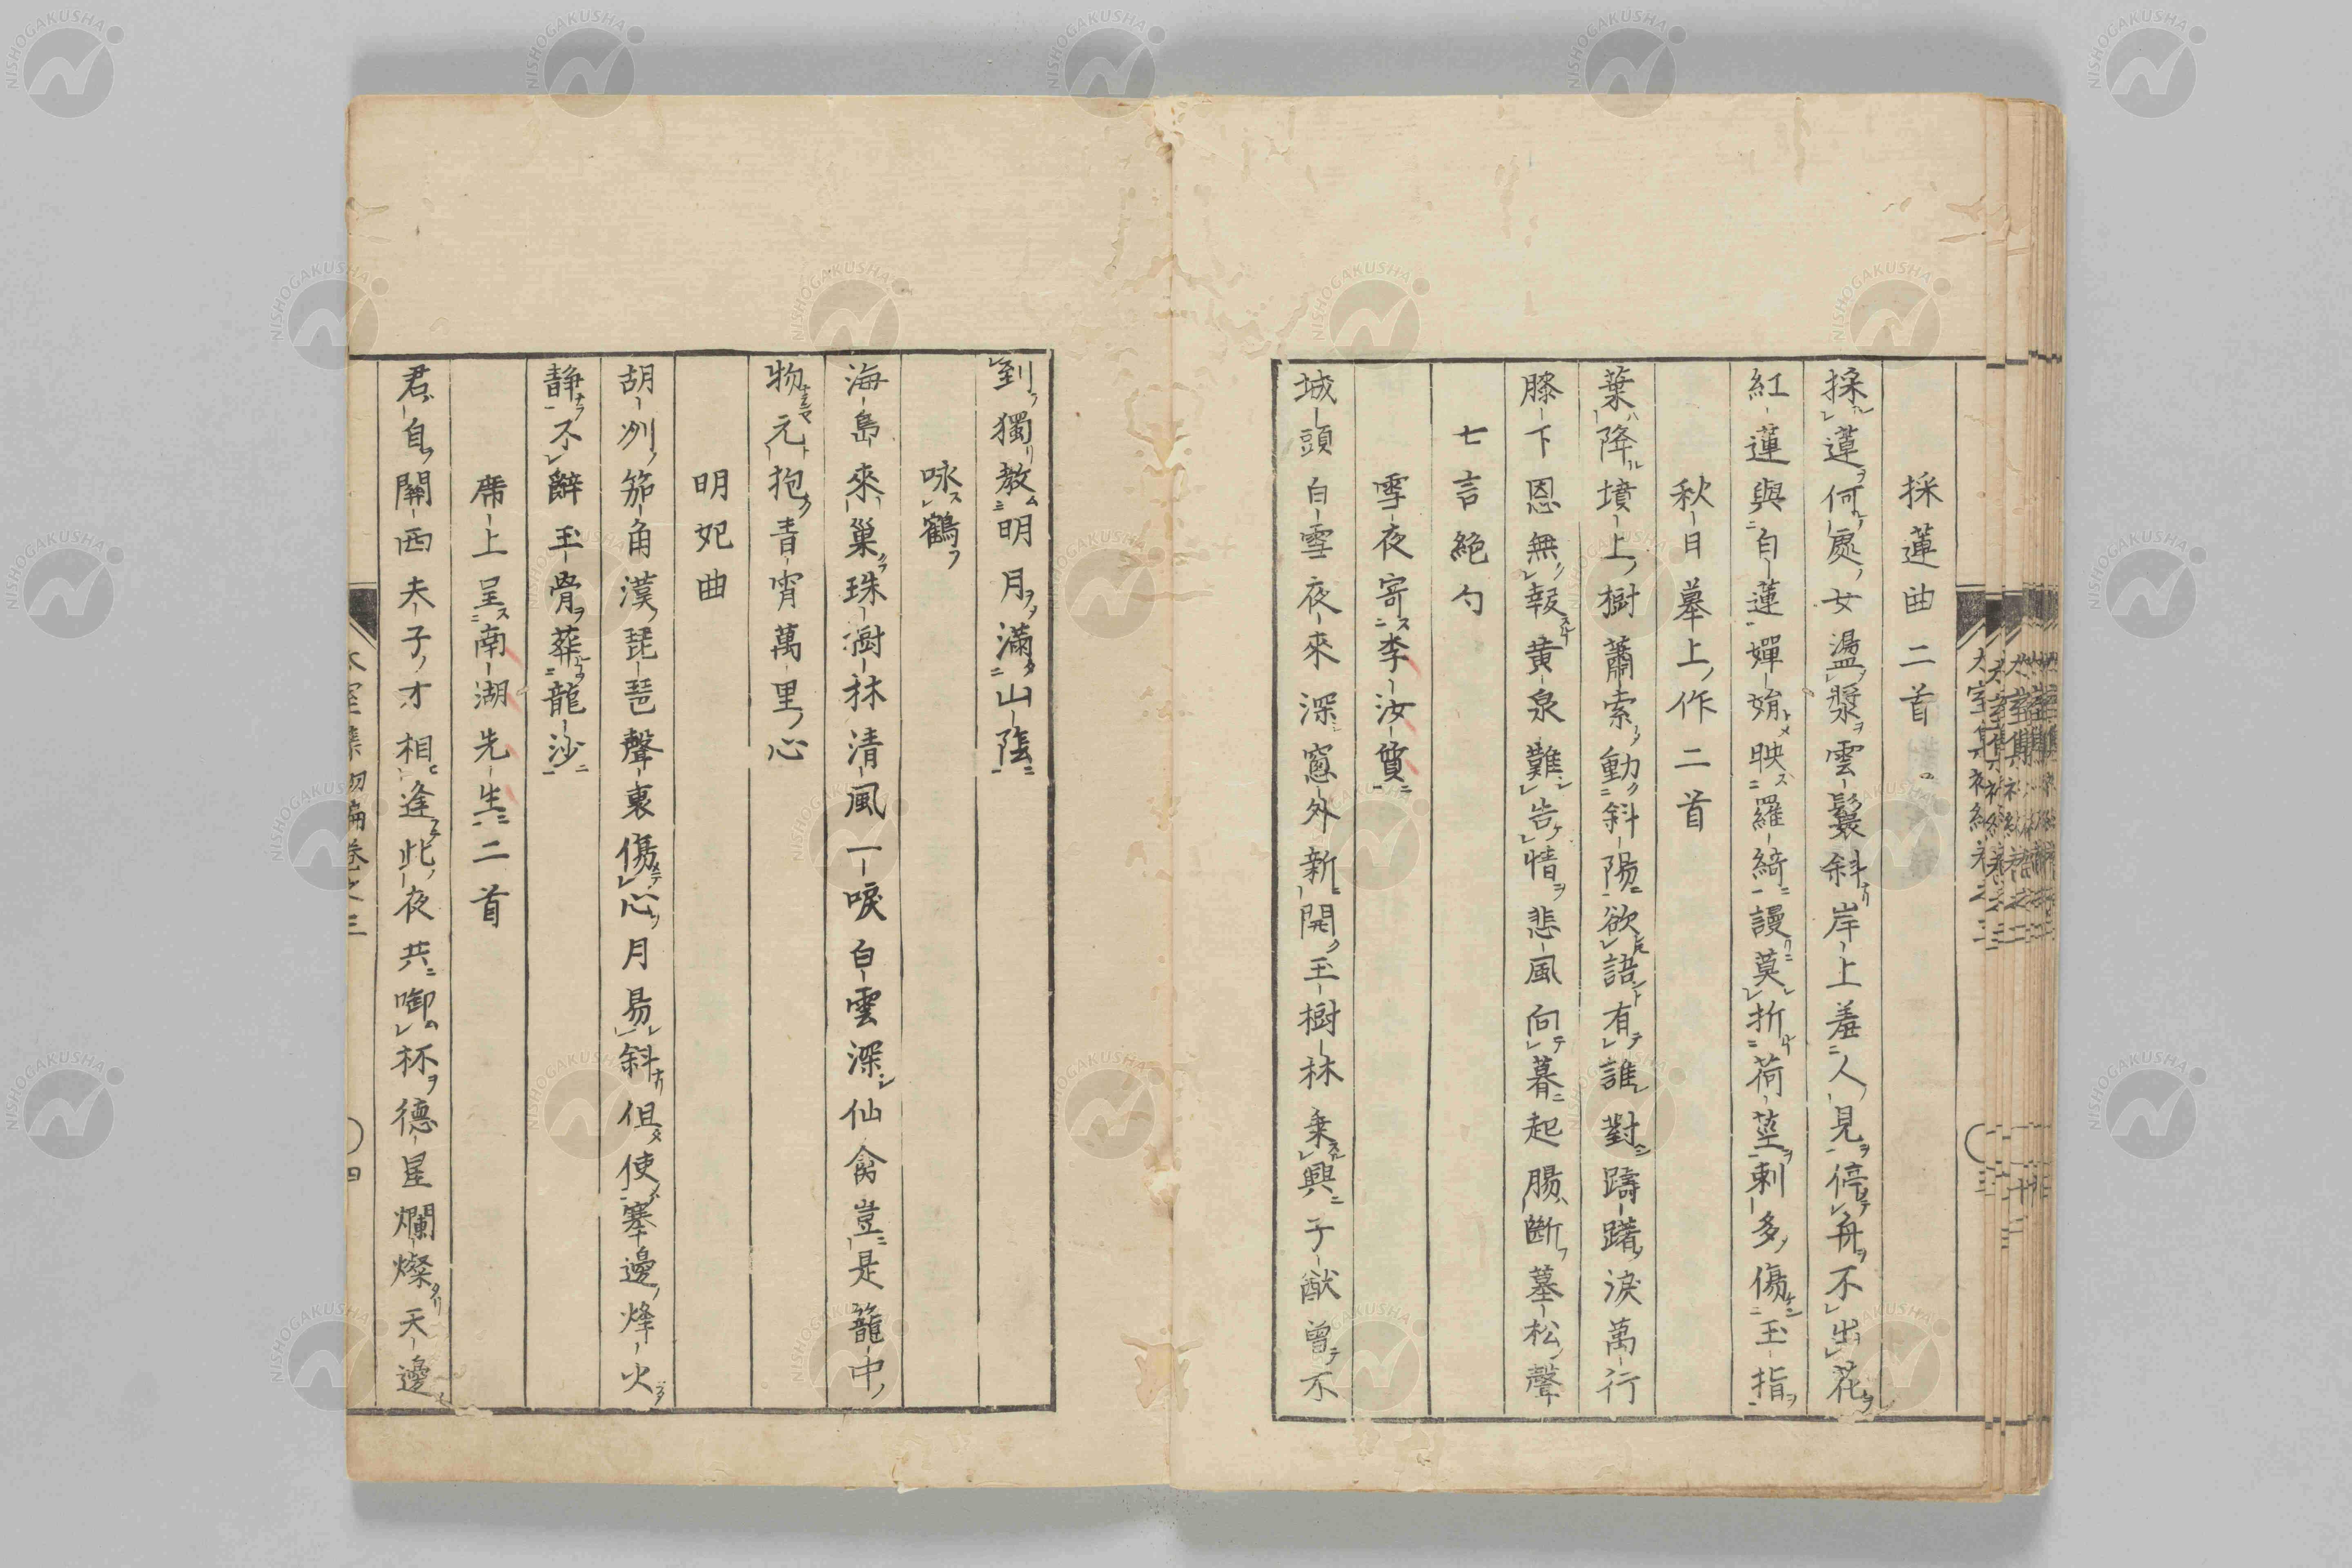 採蓮曲二首
採蓮何處女盪槳雲鬟斜岸上羞人見停舟不出花
紅蓮與白蓮嬋娟映羅綺謾莫折荷莖刺多傷玉指
秋日墓上作二首
葉降墳上樹蕭索動斜陽欲語有誰對躊躇淚萬行
膝下恩無報黄泉難告情悲風向暮起腸斷墓松聲
七言絶句
雪夜寄李汝質
城頭白雪夜來深窻外新開玉樹林乗興子猷曾不
到獨教明月滿山陰
咏鶴
海島來巢珠樹林清風一唳白雲深仙禽豈是籠中
物元抱青霄萬里心
明妃曲
胡州笳角漢琵琶聲裏傷心月易斜但使塞邊烽火
静不辭玉骨葬龍沙
席上呈南湖先生二首
君自關西夫子才相逢此夜共啣杯德星爛燦天邊
太室集初編卷之三
四
NISHOGAKUSHA